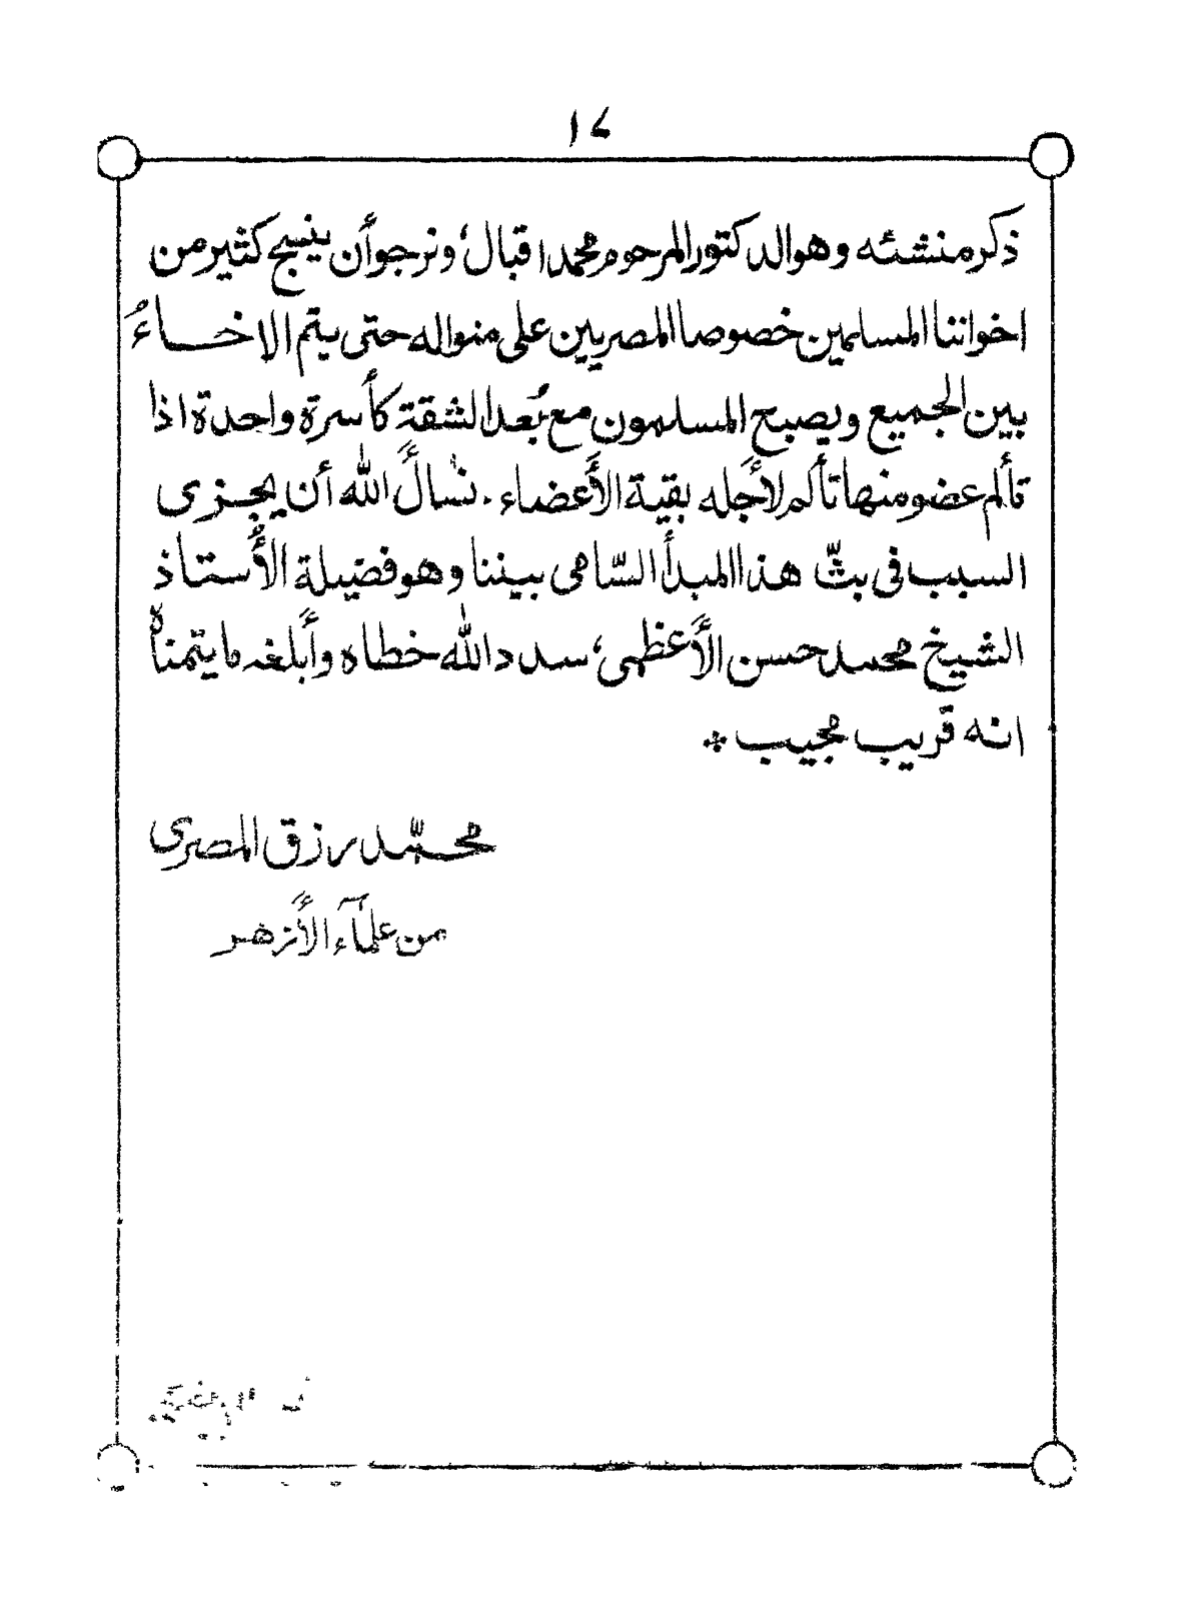 ١٤
ذكر منشئه وهو الدكتور المرحوم محمد اقبال، ونرجو أن ينسج كثير من
اخواننا المسلمين خصوصا المصريين على منواله حتى يتم الاخــاءُ
بين الجميع ويصبح المسلمون مع بُعد الشقة كأسرة واحدة اذا
تألم عضو منها تألم لأجله بقية الأعضاء. نسأل الله أن يجزى
السبب فى بثّ هذا المبدأ السّامى بيننا وهو فضيلة الأستاذ
الشيخ محمد حسن الأعظمى، سدد الله خطاه وأبلغه ما يتمناه
انه قريب مجيب
محمّد رزق المصرى
من علمآء الأزهر